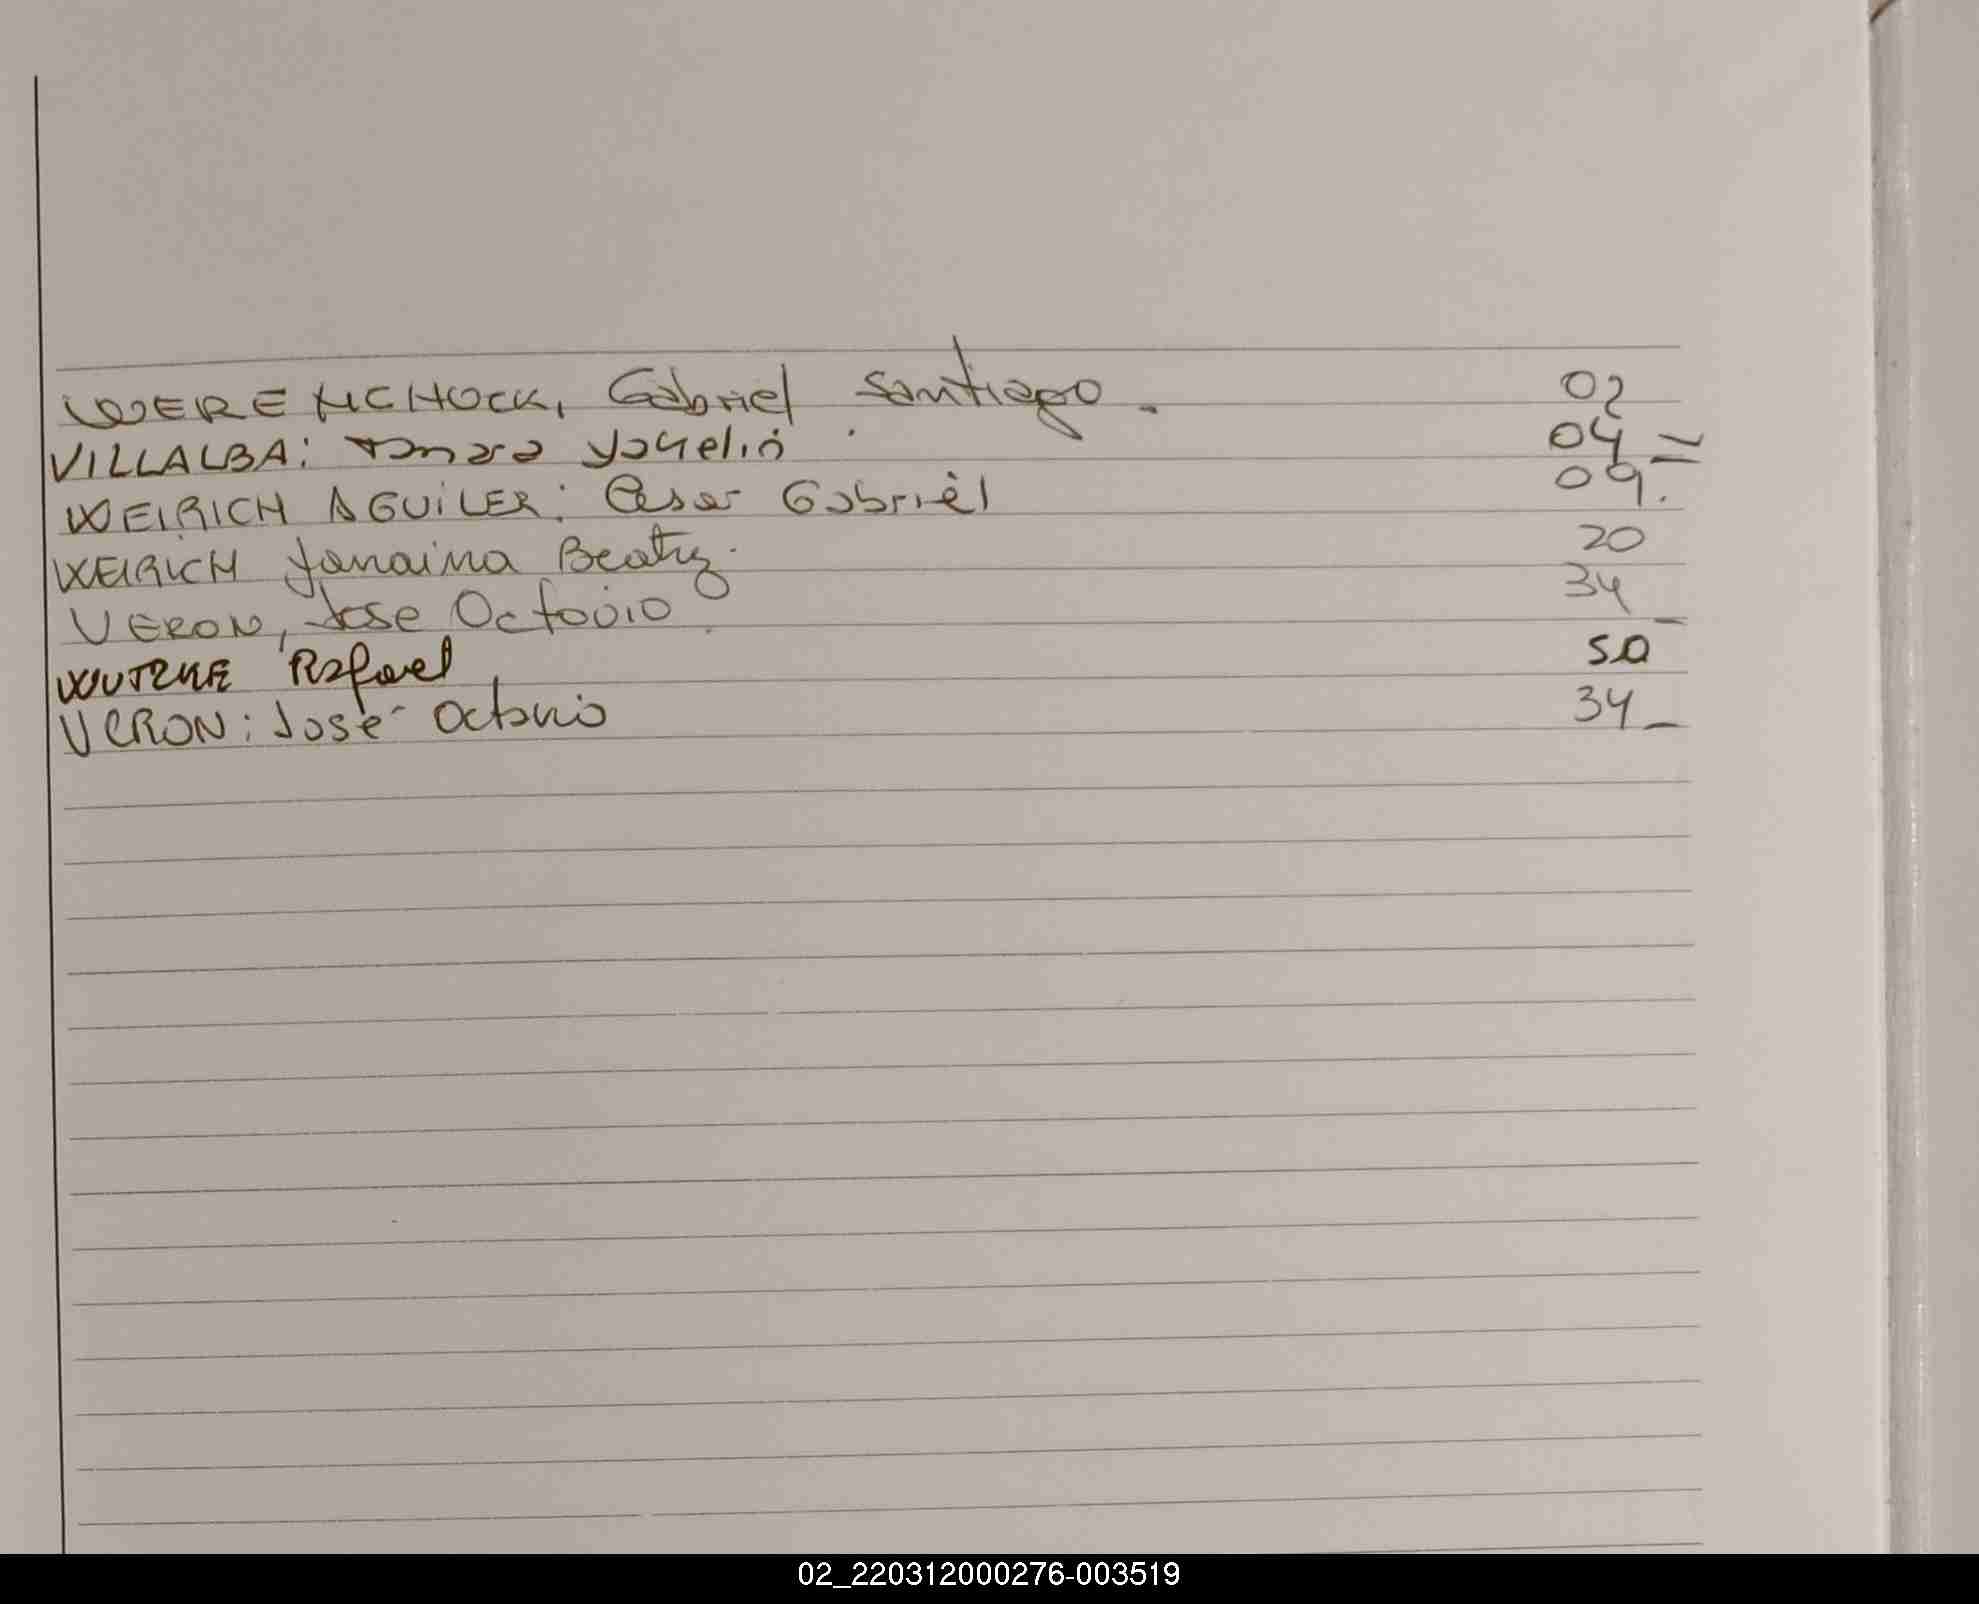 WERENCHOCK, Gabriel Santiago. 02
VILLALBA: Yoselin 04 =
WEIRICH AGUILER: Cesar Gabriel 09.
WEIRICH Janaina Beatriz. 20
VERON, Jose Octavio 34 _
Rafael 50
VERON: José Octavio 34 _
02_220312000276-003519